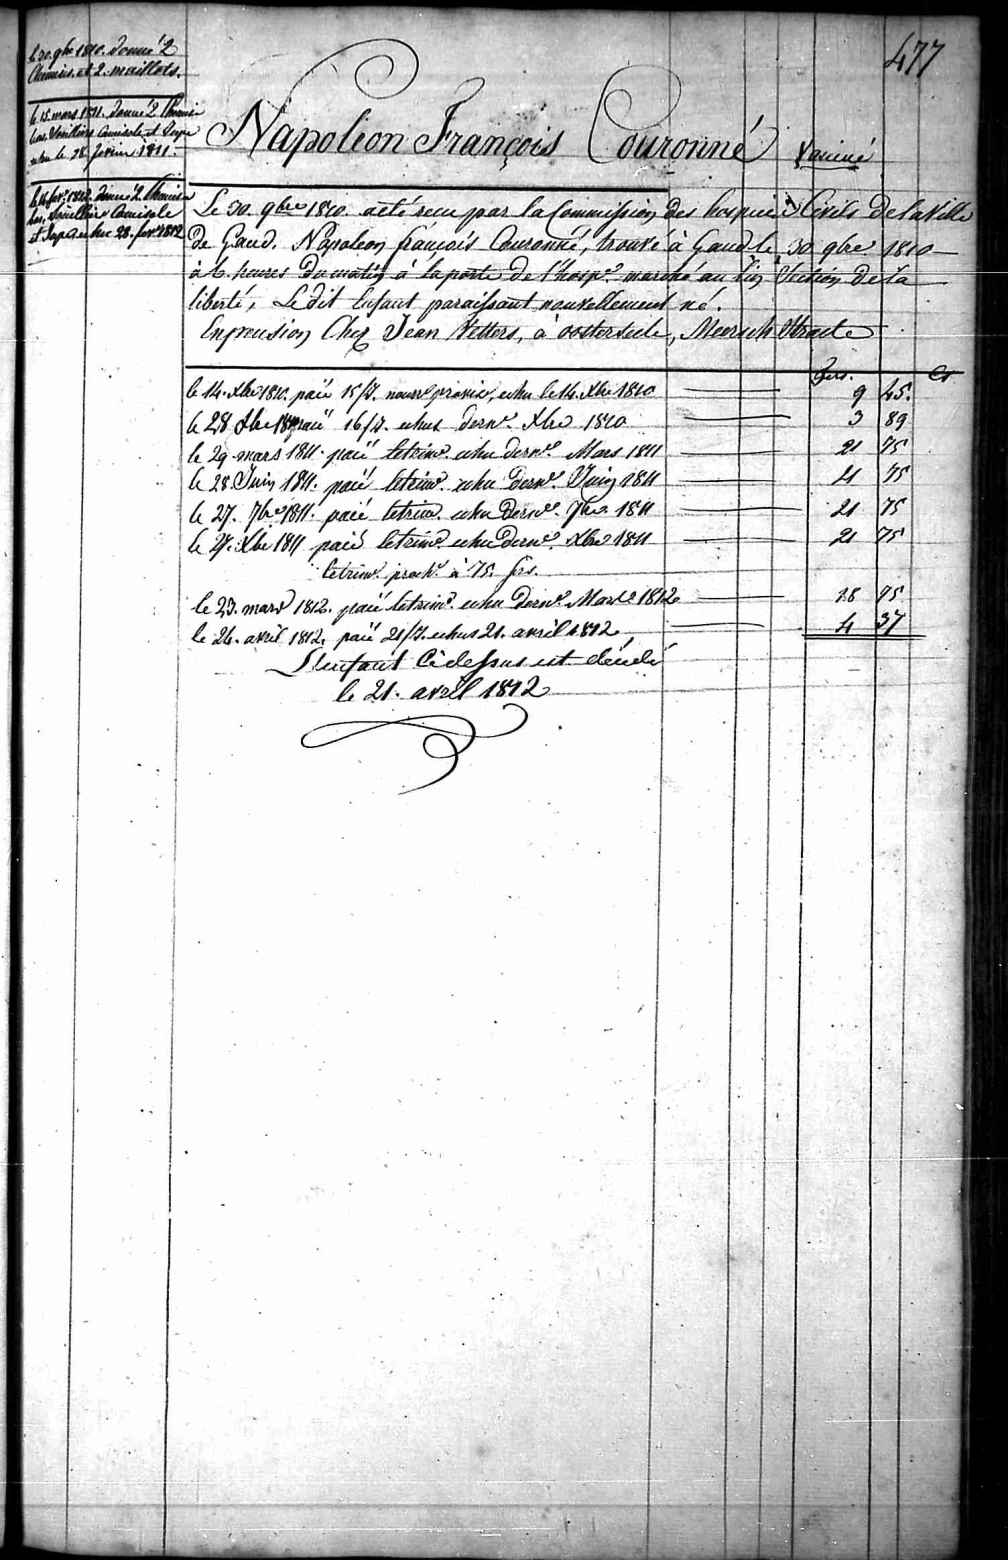 477
le 30. 9bre 1810. donné 2
Chemises. et 2. maillots.
le 15. mars 1811. donné 2 Chemises
Camisole et
echu le 28. fevrier 1811.
le 14. fevr. 1812. donné 2. Chemises
Camisole
et Jupe echu 28. fevr 1812
Napoléon François Couronné
Vacciné
Le 30. 9bre 1810. acté recu par la Commission des hospices Civils de la Ville
de Gand. Napoleon françois Couronné, trouvé à Gand le 30 9bre 1810
à 6. heures du matin à la porte de l'hospe. marché au lin Section de la
liberté, Ledit Enfant paraissant nouvellement né.
En pension Chez Jean Vetters, à oosterzeele, Meersch Straete
frs. Cs
le 14. Xbre 1810. paié 15/J. nourre provire, echu le 14. Xbre 1810 9 45.
le 28 Xbre 1810 paié 16/J. echus dernr. Xbre 1810 3 89
le 29 mars 1811. paié letrimre. echu dernr. Mars 1811 21 75
le 28 Juin 1811. paié letrimre. echu dernr. Juin 1811 21 75
le 27. 7bre 1811. paié letrimre. echu dernr. 7bre 1811 21 75
le 27. Xbre 1811 paié letrimre. echu dernr. Xbre 1811 21 75
letrimre. proch. à 75. frs.
le 23. mars 1812. paié letrimre. echu dernr. Mars 1812 18 75
le 26. avril 1812. paié 21/J. echus 21. avril 1812, 4 37
L'enfant Cidessus est décédé
le 21. avril 1812